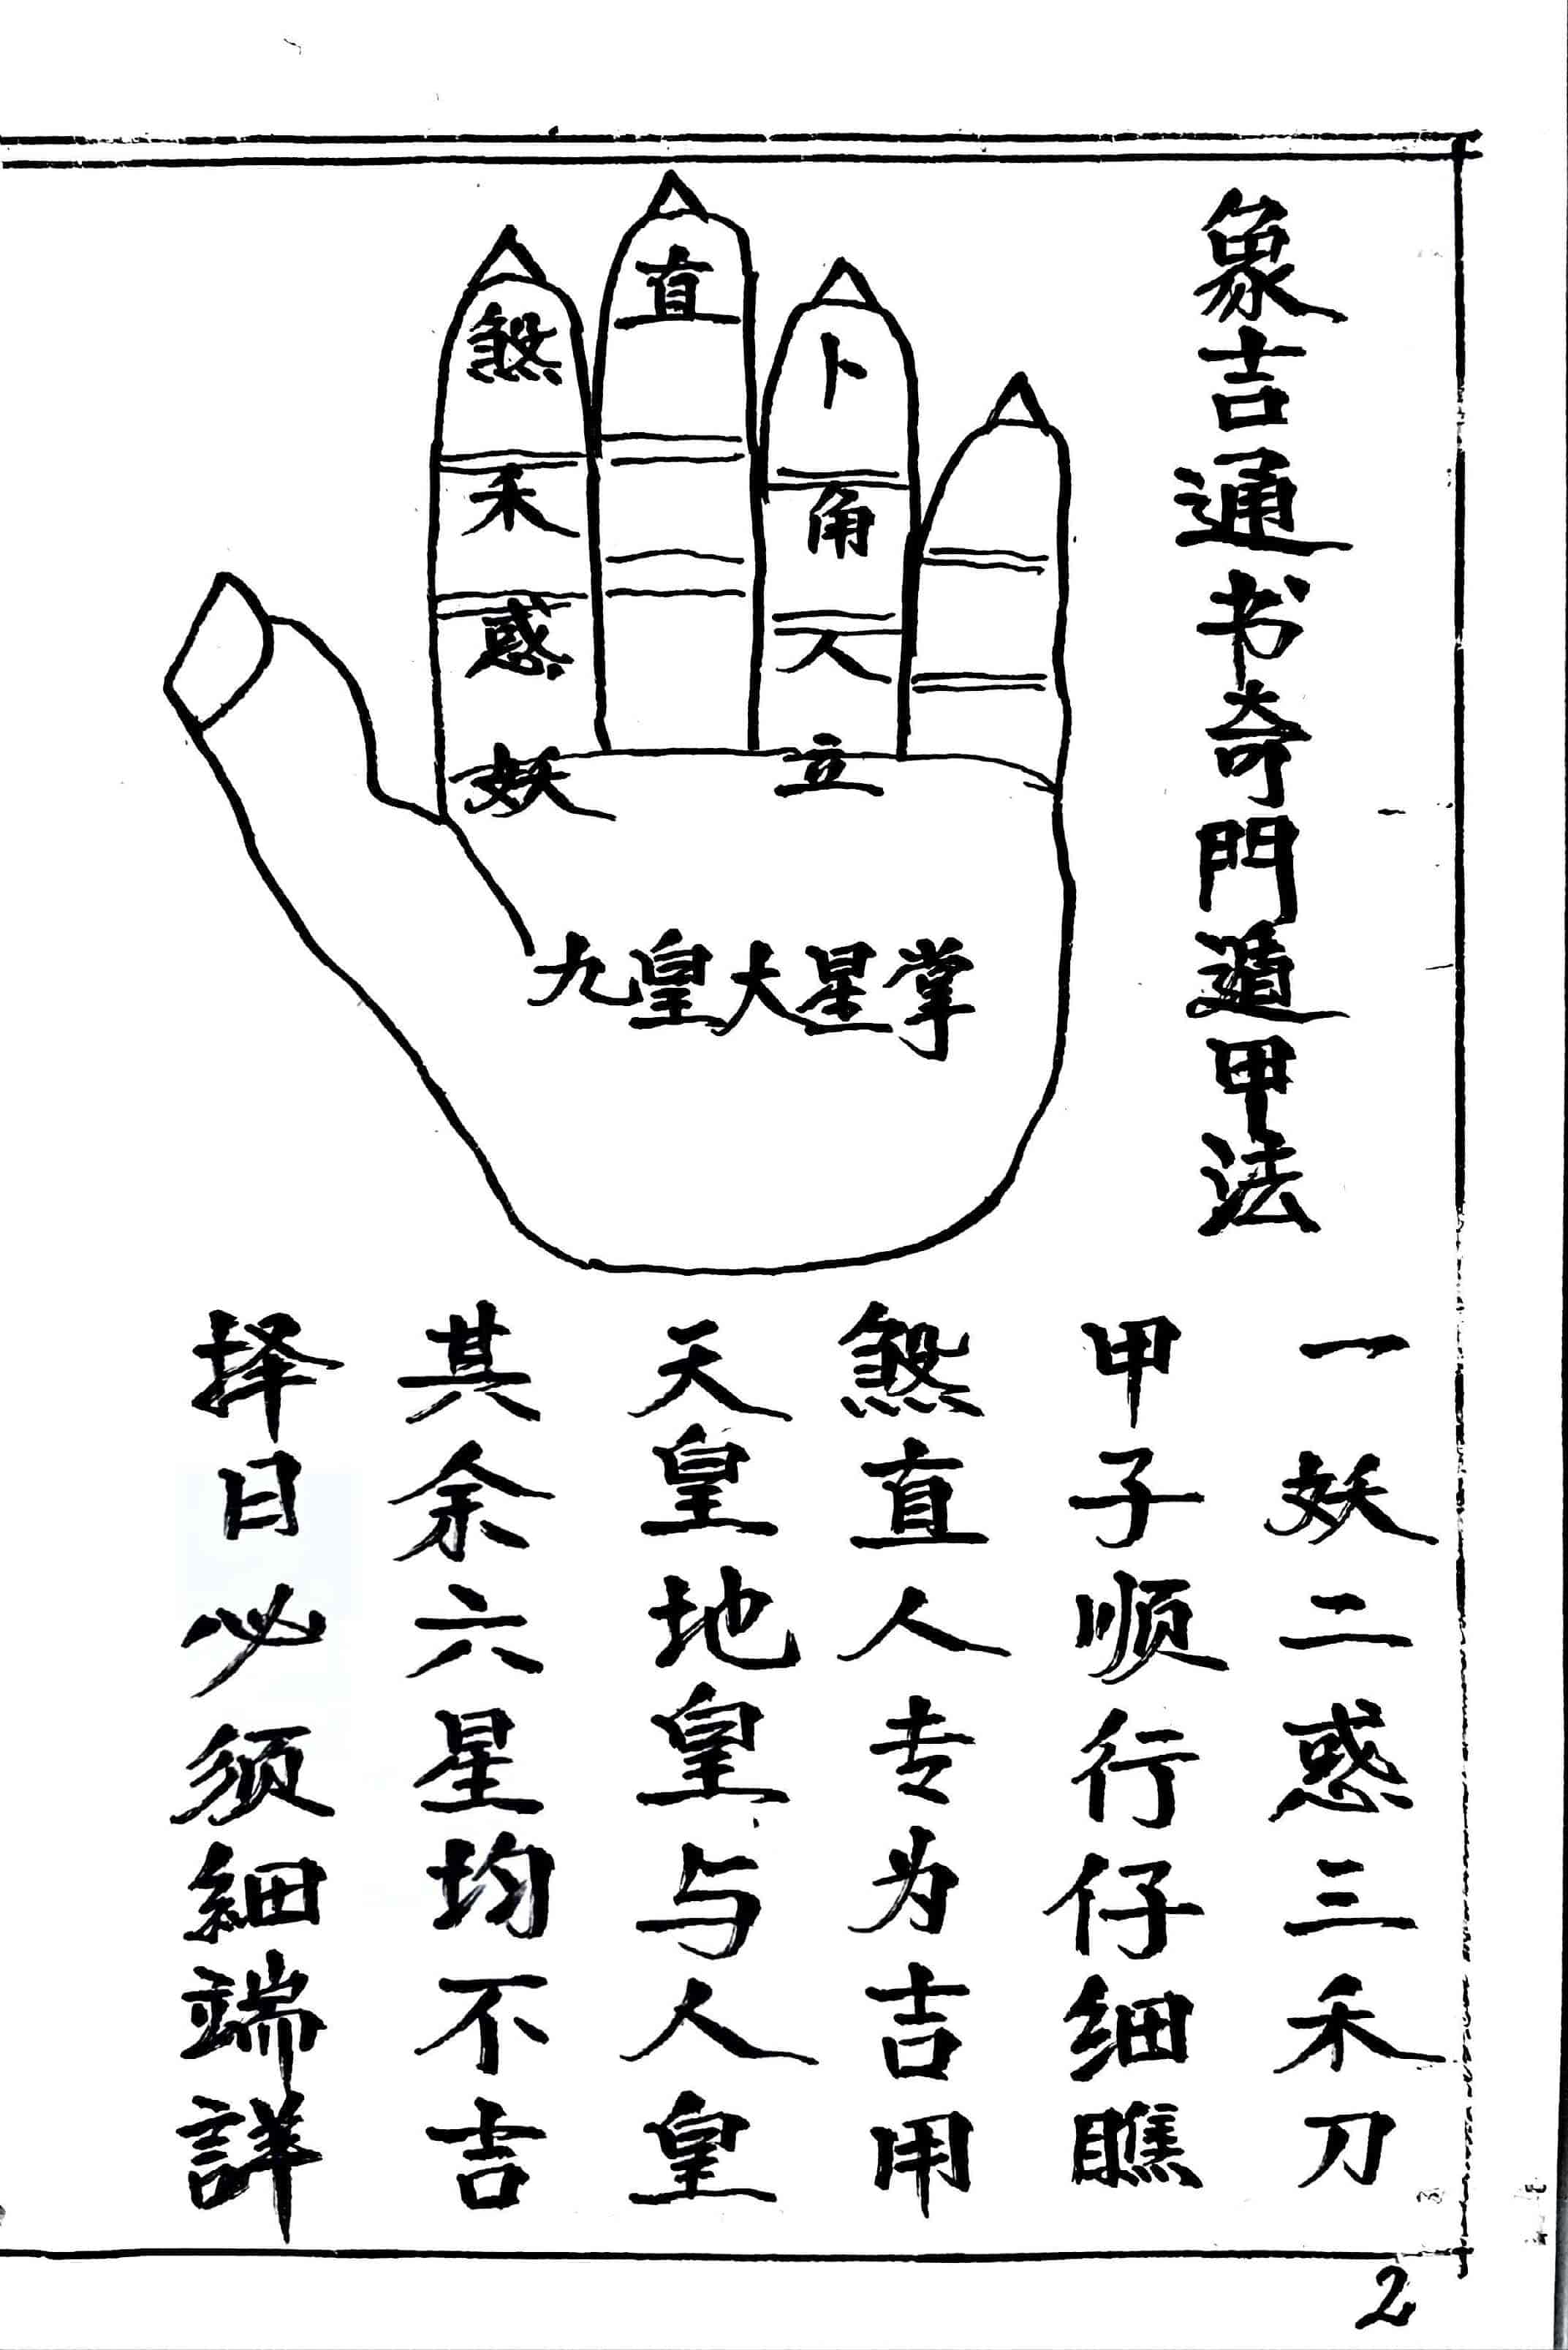 象吉通书奇門遁甲法
煞
禾
惑
妖
直
卜
角
人
立
九皇大星掌
一妖二惑三禾刀
甲子顺行仔细瞧
煞直人专为吉用
天皇地皇与人皇
其余六星均不吉
择日必须細端詳
2